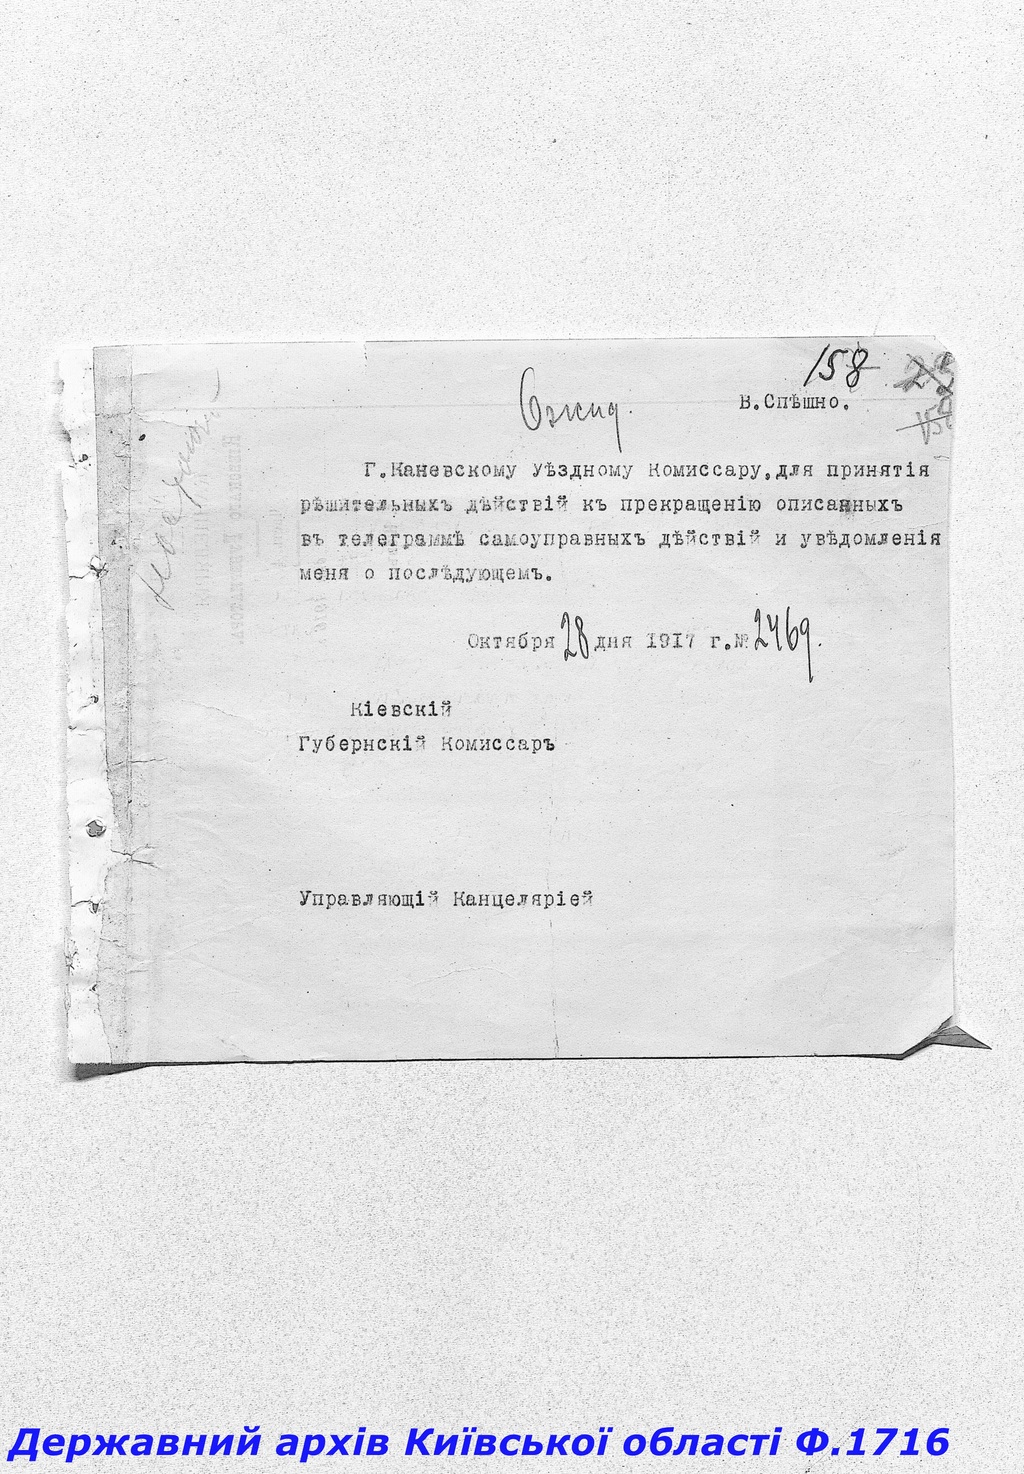 158
Ожид.
В.Спѣшно.
Г.Каневскому Уѣздному Комиссару,для принятія
рѣшительныхъ дѣйствій къ прекращенію описанныхъ
въ телеграммѣ самоуправныхъ дѣйствій и увѣдомленія
меня о послѣдующемъ.
Октября 28 дня 1917 г.№ 2469.
Кіевскій
Губернскій Комиссаръ
Управляющій Канцеляріей
Державний архів Київської області Ф.1716